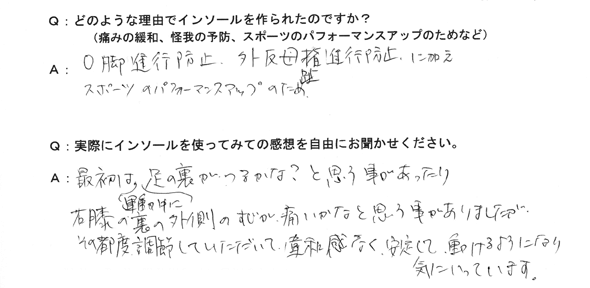 Q：どのような理由でインソールを作られたのですか？
（痛みの緩和、怪我の予防、スポーツのパフォーマンスアップのためなど）
A：O脚進行防止、外反母趾進行防止、に加え
スポーツのパフォーマンスアップのため
Q：実際にインソールを使ってみての感想を自由にお聞かせください。
A：最初は、足の裏がつるかな？と思う事があったり
運動中に
右膝の裏の外側のすじが痛いかなと思う事がありましたが、
その都度調節していただいて、違和感なく、安定して、動けるようになり
気にいっています。